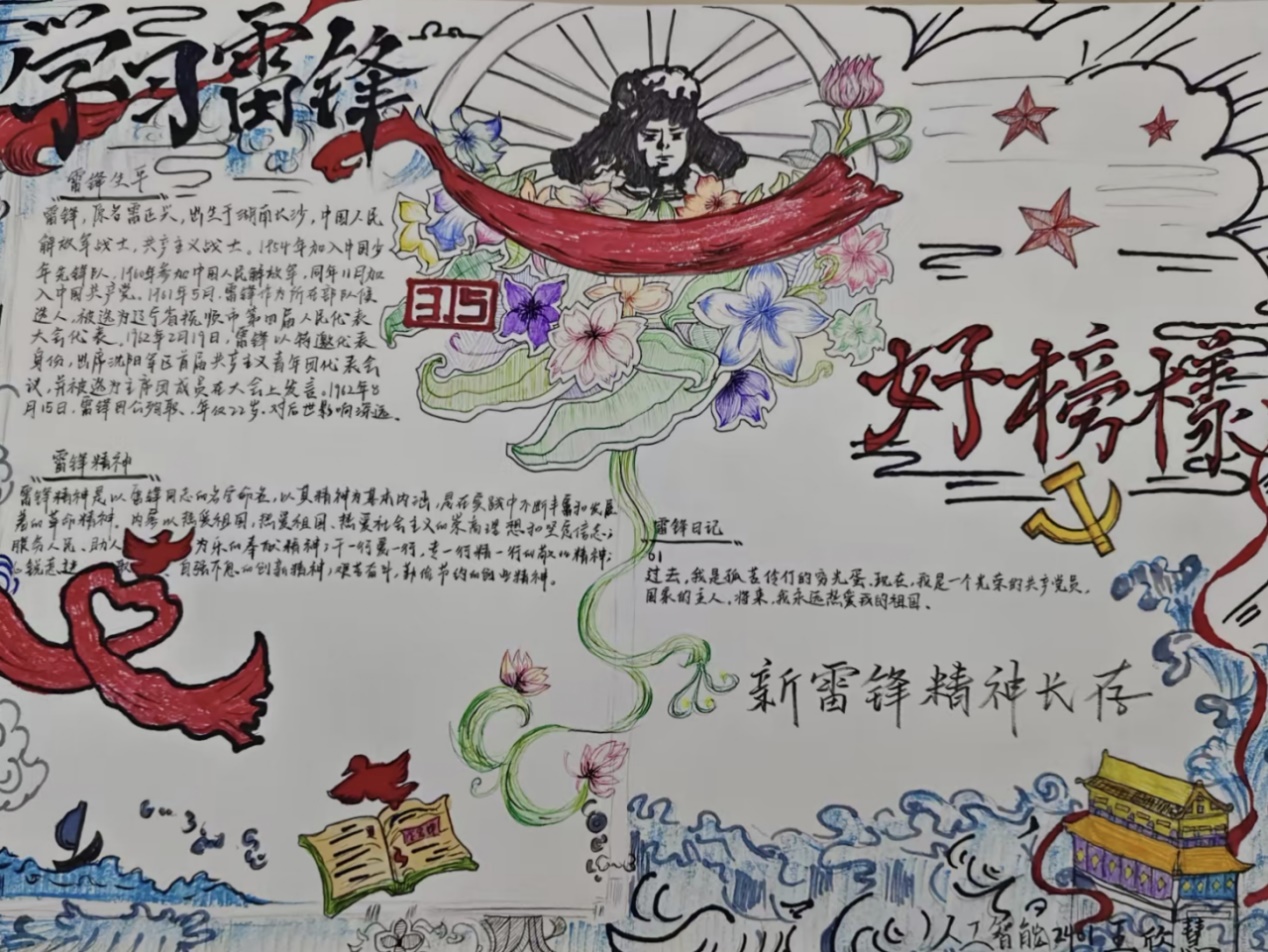 学习雷锋
雷锋生平
雷锋,原名雷正兴,出生于湖南长沙,中国人民
解放军战士,共产主义战士。1954年加入中国少
年先锋队,1960年参加中国人民解放军,同年11月加
入中国共产党。1961年5月,雷锋作为所在部队候
选人,被选为辽宁省抚顺市第四届人民代表
大会代表。1962年2月19日,雷锋以特邀代表
身份,出席沈阳军区首届共产主义青年团代表会
议,并被选为主席团成员在大会上发言。1962年8
月15日,雷锋因公殉职,年仅22岁,对后世影响深远。
3.15
好榜样
雷锋精神
雷锋精神是以雷锋同志的名字命名,以其精神为基本内涵,是在实践中不断丰富和发展
着的革命精神。内容以热爱祖国,热爱祖国、热爱社会主义的崇高理想和坚定信念;
服务人民、助人为乐的奉献精神;干一行爱一行,专一行精一行的敬业精神;
锐意进取自强不息的创新精神;艰苦奋斗,勤俭节约的创业精神。
雷锋日记
01
过去,我是孤苦伶仃的穷光蛋,现在,我是一个光荣的共产党员,
国家的主人。将来,我永远热爱我的祖国。
新雷锋精神长存
人工智能2401 王欣慧